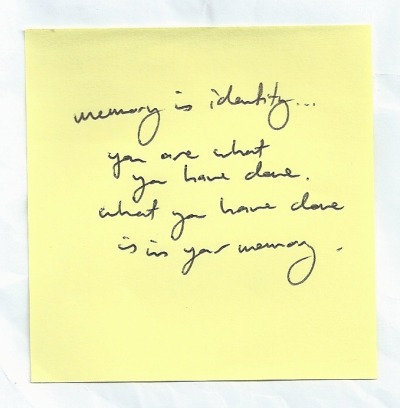 memory is identity...
you are what
you have done.
what you have done
is in your memory.